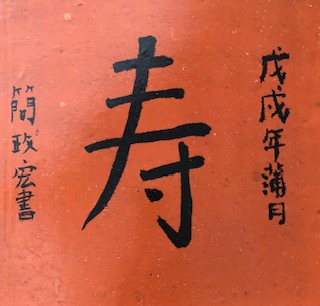 戊戌年蒲月
寿
簡政宏書